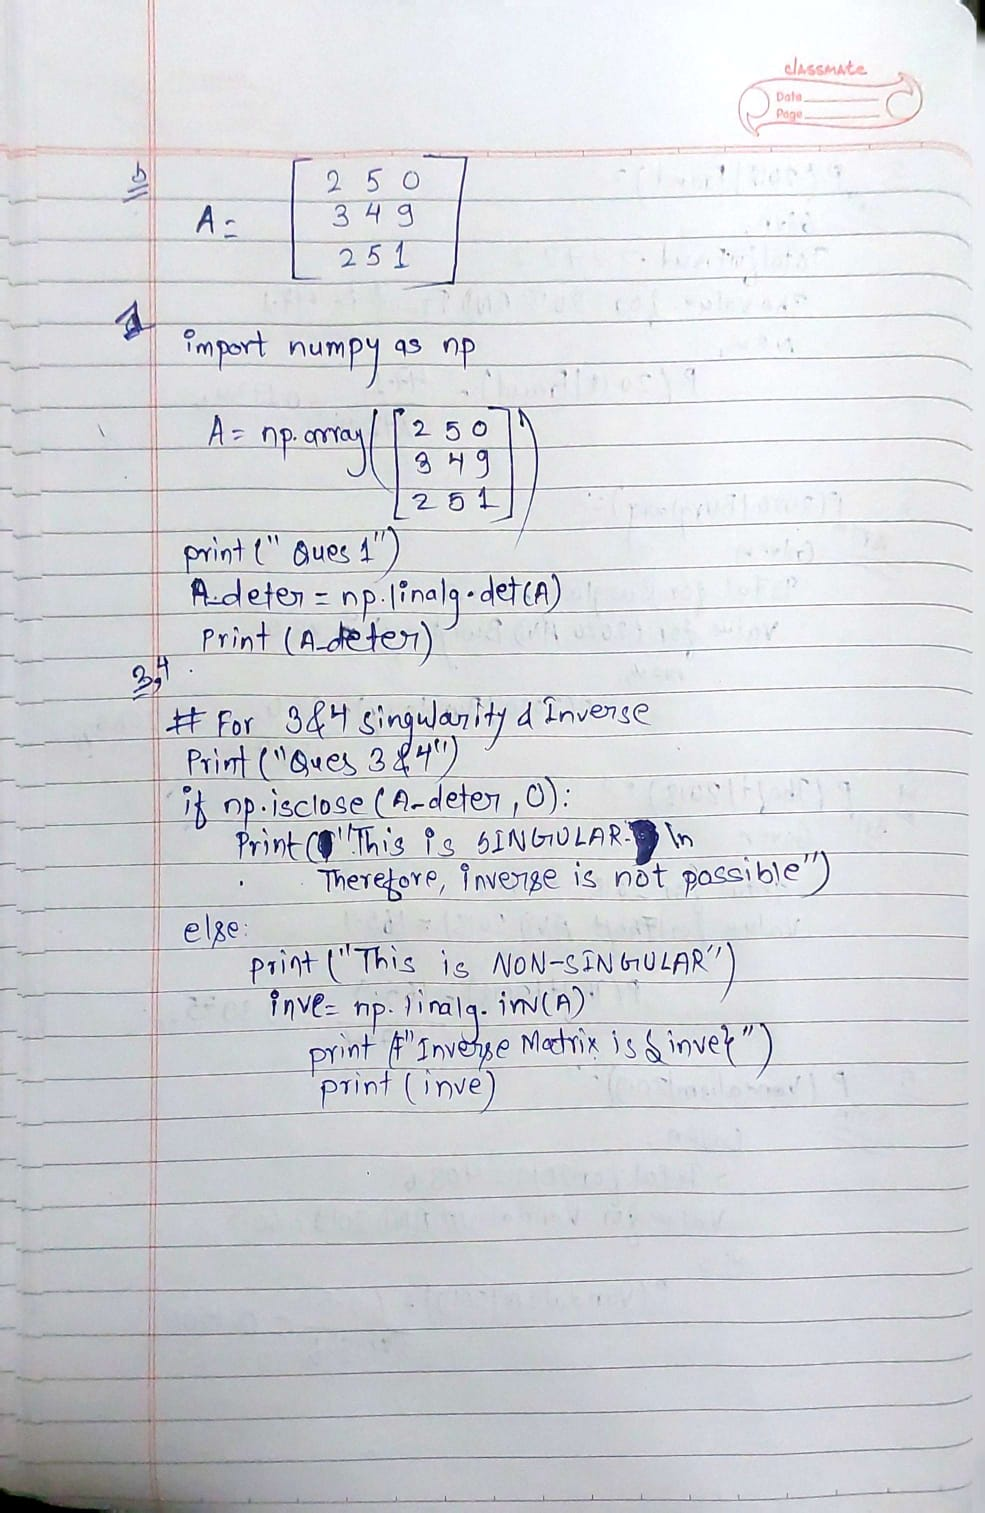 classmate
Date
Page
b
2 5 0
A = 3 4 9
2 5 1
1
import numpy as np
A = np.array([2 5 0
3 4 9
2 5 1])
print (" Ques 1")
A_deter = np.linalg.det(A)
Print (A_deter)
3,4
# For 3&4 singularity & Inverse
Print ("Ques 3 & 4")
if np.isclose (A_deter, 0):
Print ("This is SINGULAR. \n
Therefore, inverse is not possible")
else:
print ("This is NON-SINGULAR")
inve= np.linalg.inv(A)
print (f"Inverse Matrix is {inve}")
print (inve)